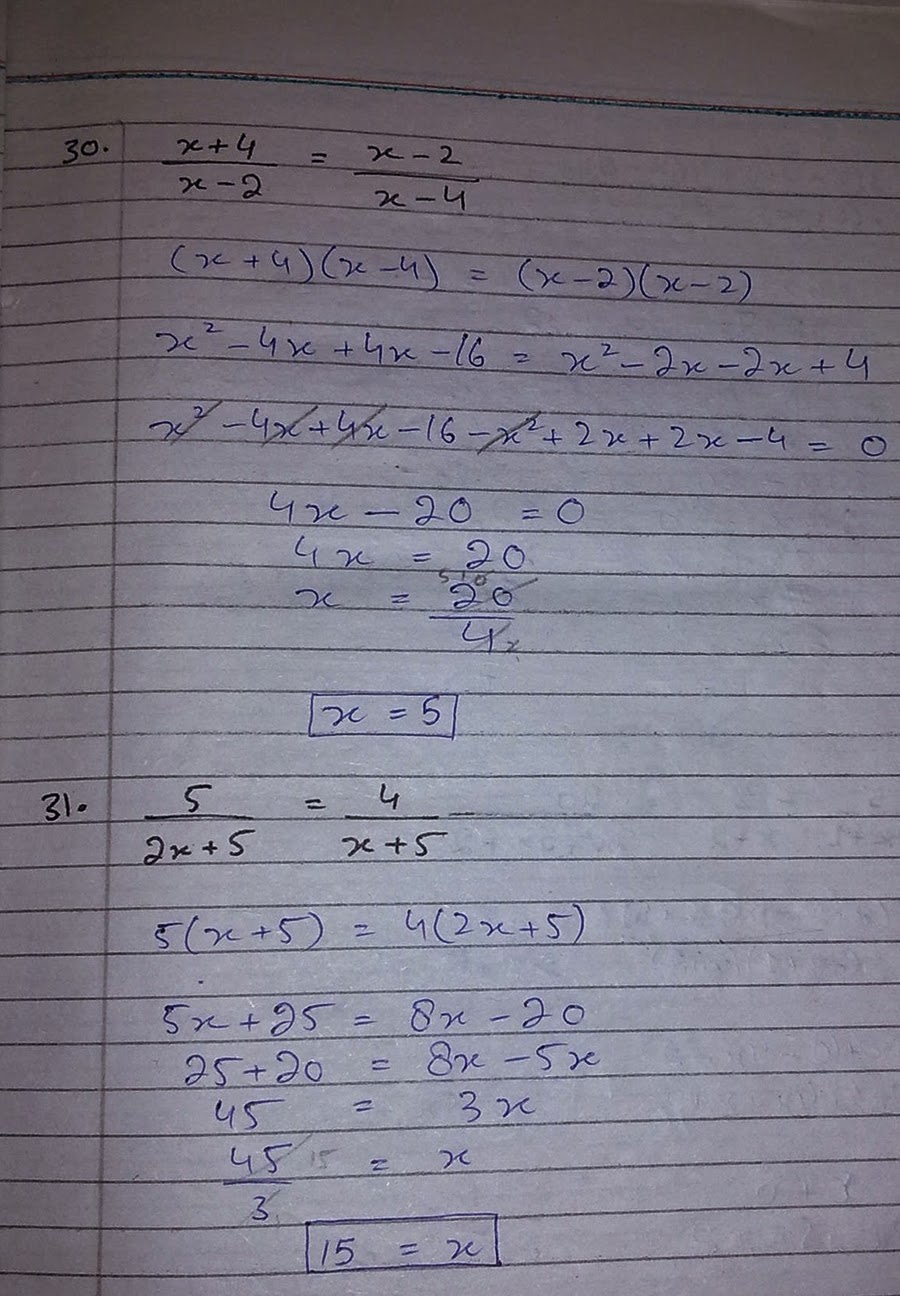 30. x+4/x-2 = x-2/x-4
(x+4)(x-4) = (x-2)(x-2)
x² -4x +4x -16 = x² -2x -2x +4
x² -4x +4x -16 -x² +2x +2x -4 = 0
4x - 20 = 0
4x = 20
x = 20/4
x = 5
31. 5/2x+5 = 4/x+5
5(x+5) = 4(2x+5)
5x+25 = 8x-20
25+20 = 8x-5x
45 = 3x
45/3 15 = x
15 = x